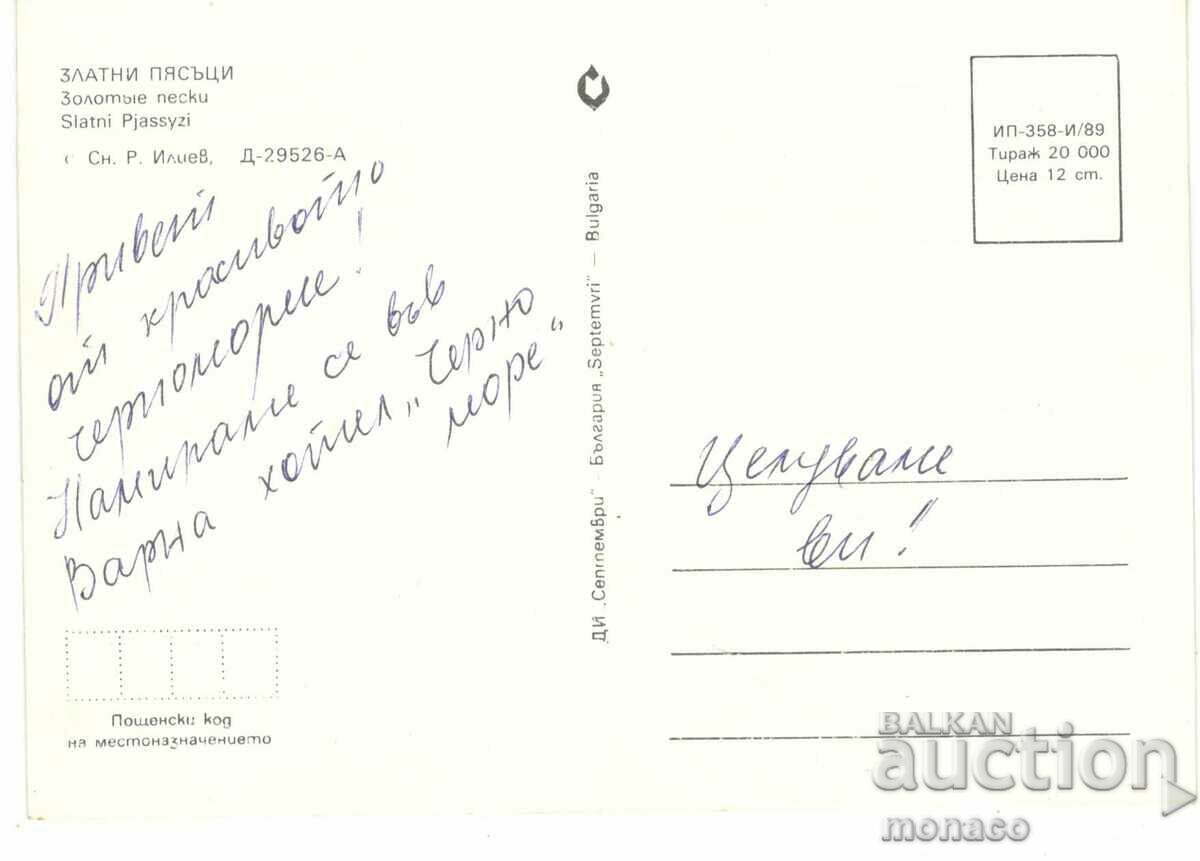 ЗЛАТНИ ПЯСЪЦИ
Золотые пески
Slatni Pjassyzi
Сн. Р. Илиев, Д-29526-А
Привет
от красивото
черноморие!
Намираме се във
Варна хотел „Черно
море“
Пощенски код
на местоназначението
ДИ „Септември“ — България „Septemvri“ — Bulgaria
ИП-358-И/89
Тираж 20 000
Цена 12 ст.
Целуваме
ви!
BALKAN
auction
monaco